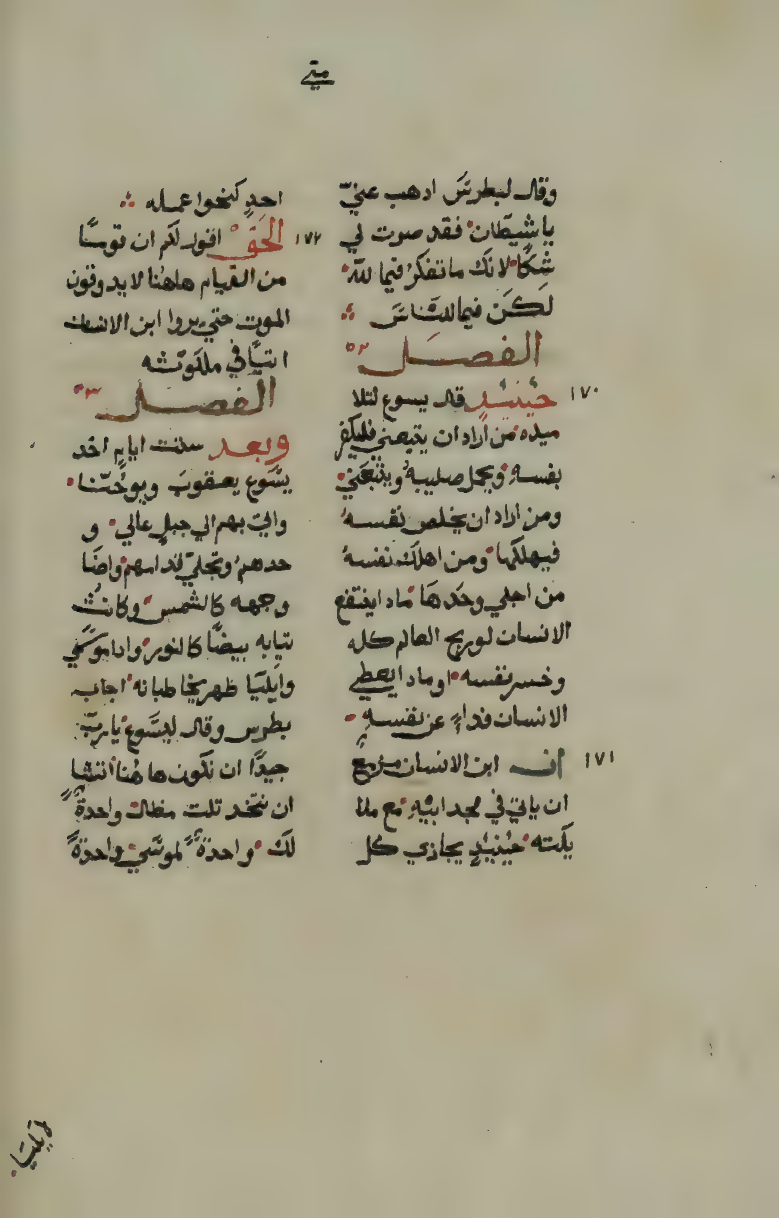 متي
وقال لبطرس ادهب عنيّ
ياشيطان فقد صرت لي
شكًا لانك ما تفكر فيما للّه
لكن فيما للناس
الفصل ٥٢
١٧٠ حينيدٍ قال يسوع لتلا
ميده من اراد ان يتبعني فليكفر
بنفسه ويحمل صليبه ويتبعني
ومن اراد ان يخلص نفسه
فيهلكها ومن اهلك نفسه
من اجلي وجدها مادا ينتفع
الانسان لو ربح العالم كله
وخسر نفسه اومادا يعطي
الانسان فداءٍ عن نفسهِ
١٧١ انـ ابن الانسان مزمع
ان ياتي في مجد ابيه مع ملا
يكته حينيدٍ يجازي كل
احدٍ كنحوا عمله
١٧٢ الحق اقول لكم ان قومًا
من القيام هاهنا لا يدوقون
الموت حتي يروا ابن الانسان
اتيًا في ملكوته
الفصل ٥٣
وبعد ستت ايام اخد
يسوع يعقوب ويوحنا
واتي بهم الي جبلٍ عالي و
حدهم وتجلي قدامهم واضا
وجهه كالشمس وكانت
تيابه بيضًا كالنور وادا موسي
وايليا ظهر يخاطبانه اجاب
بطرس وقال ليسوع يارب
جيدًا ان نكون هاهنا اتشا
ان نتخد تلت مظال واحدةً
لك واحدةً لموسي واحدةً
ايليا